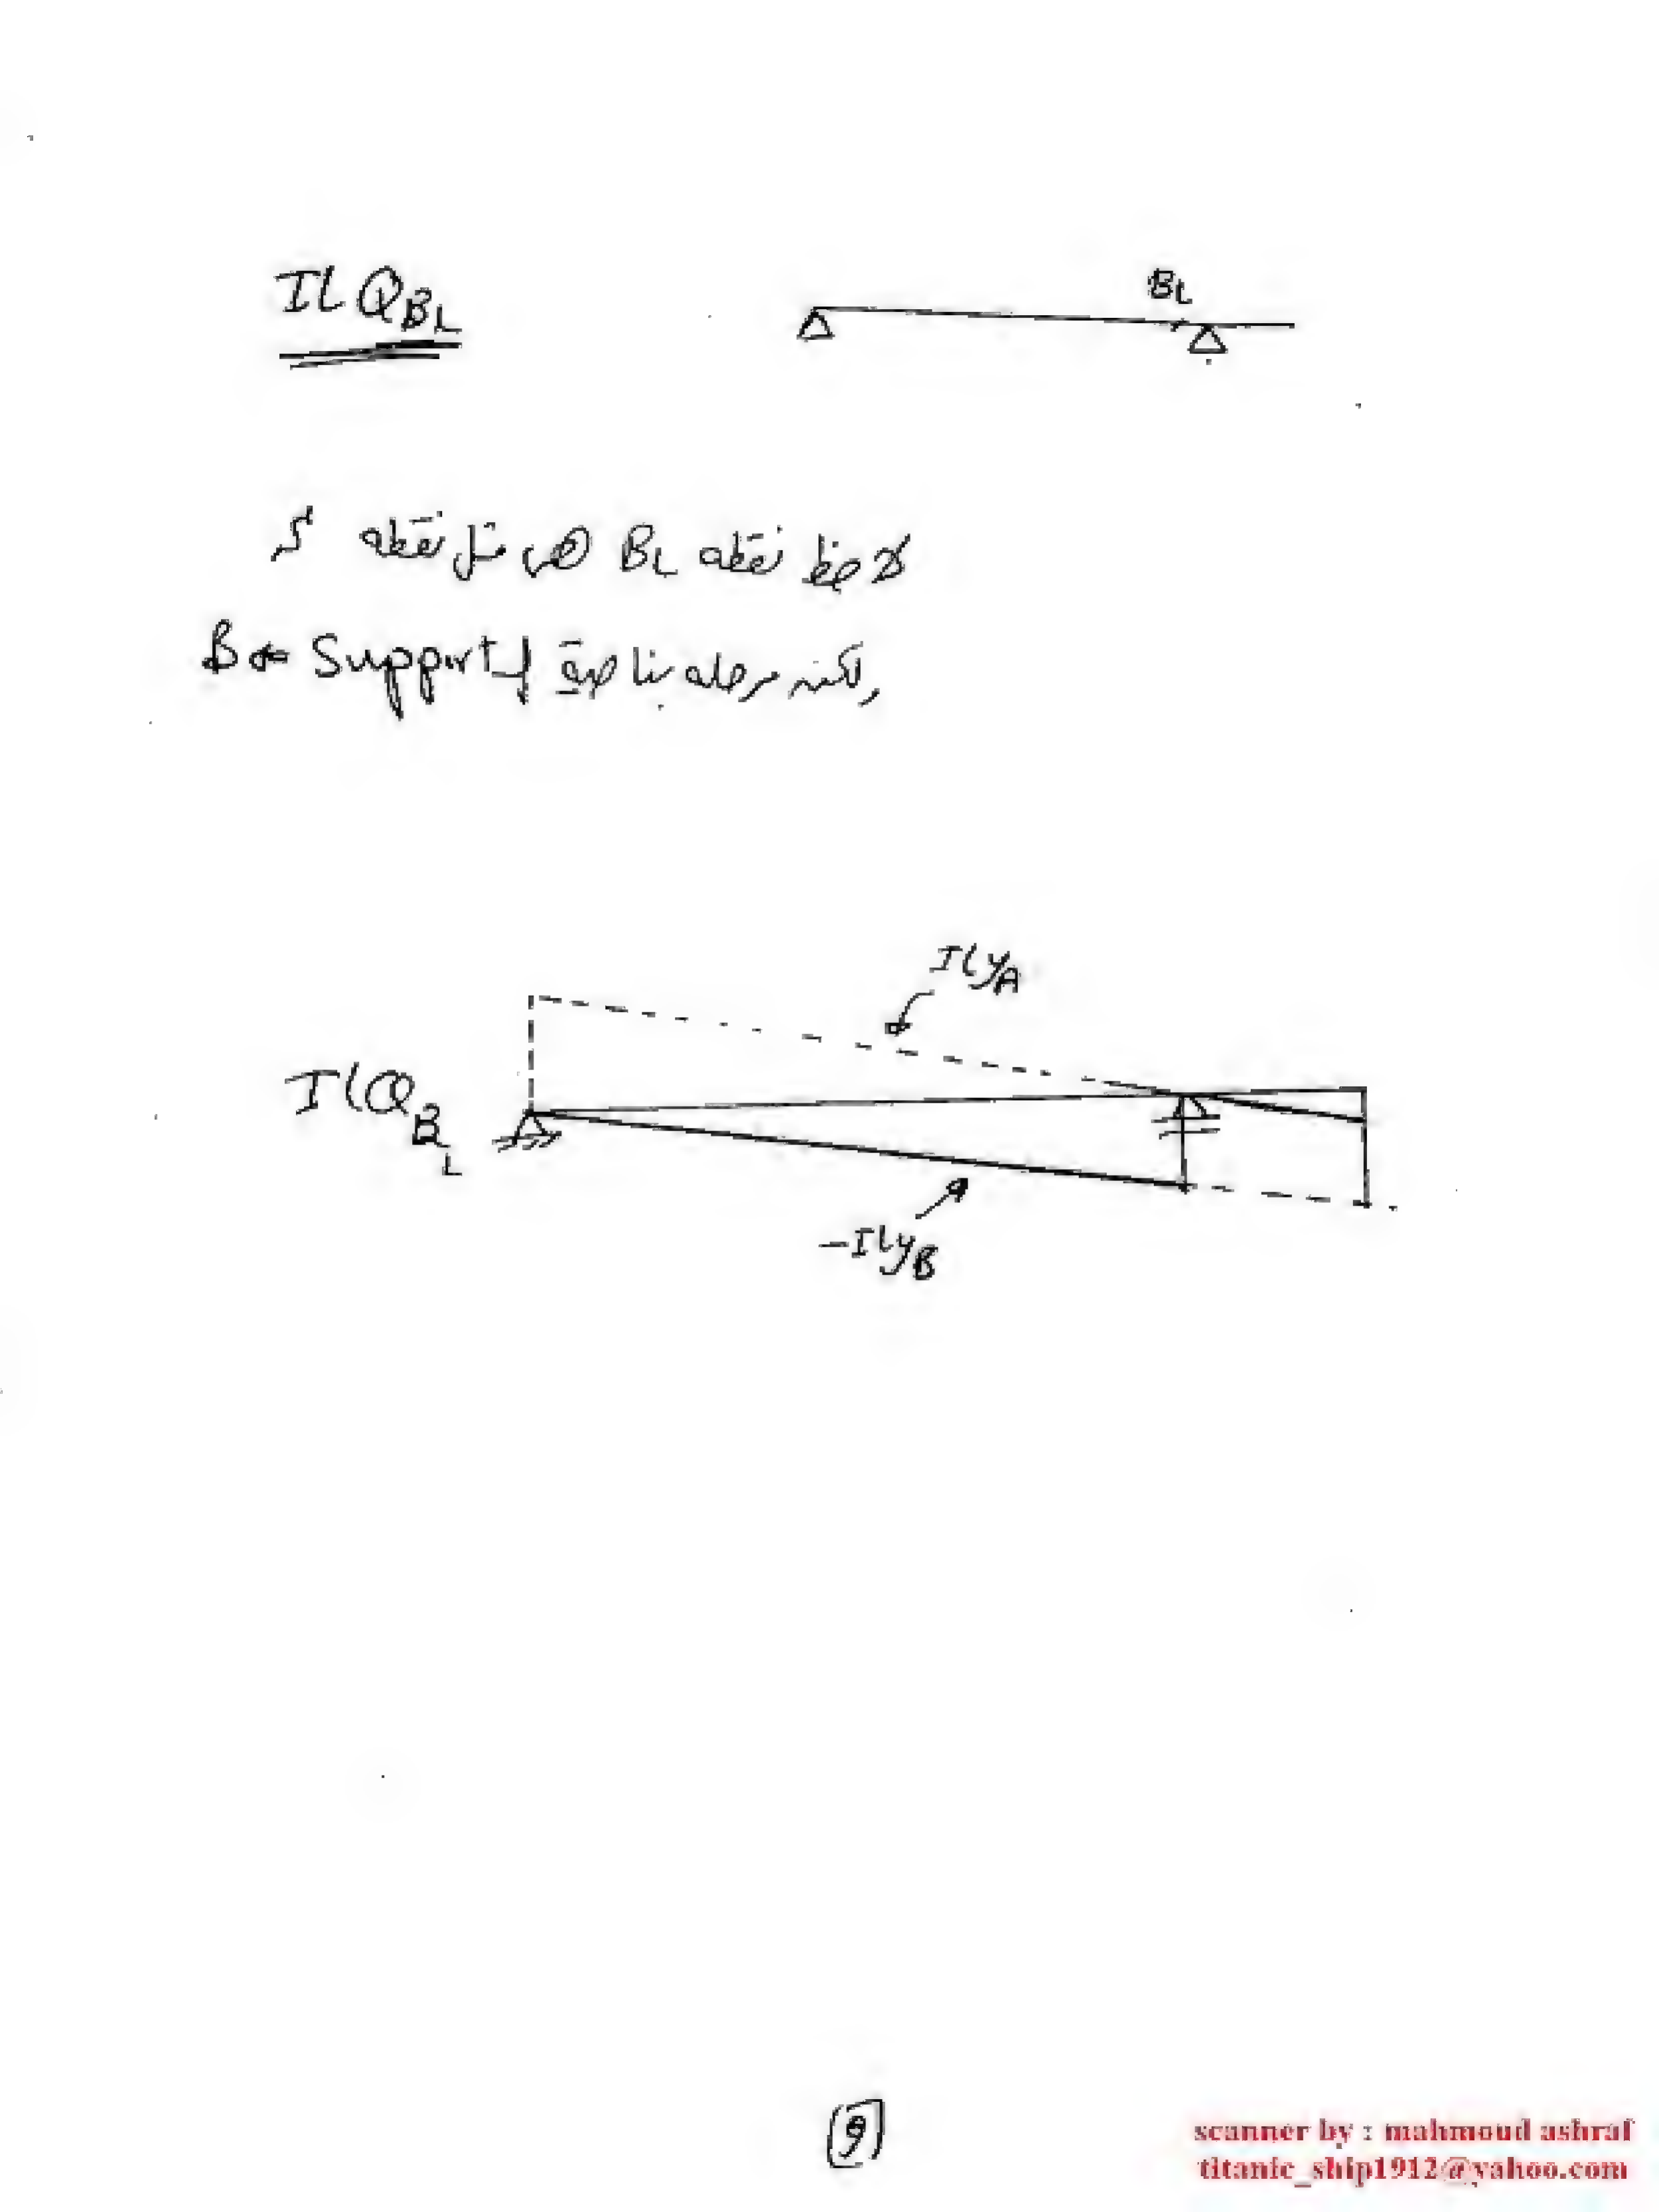 IL Q_BL
BL
لاحظ نقطه BL هى مثل نقطه S
ولكنه مرحله بناحية ال Support ← B
ILyA
ILQ_BL
-ILyB
9
scanner by : mahmoud ashraf
titanic_ship1912@yahoo.com